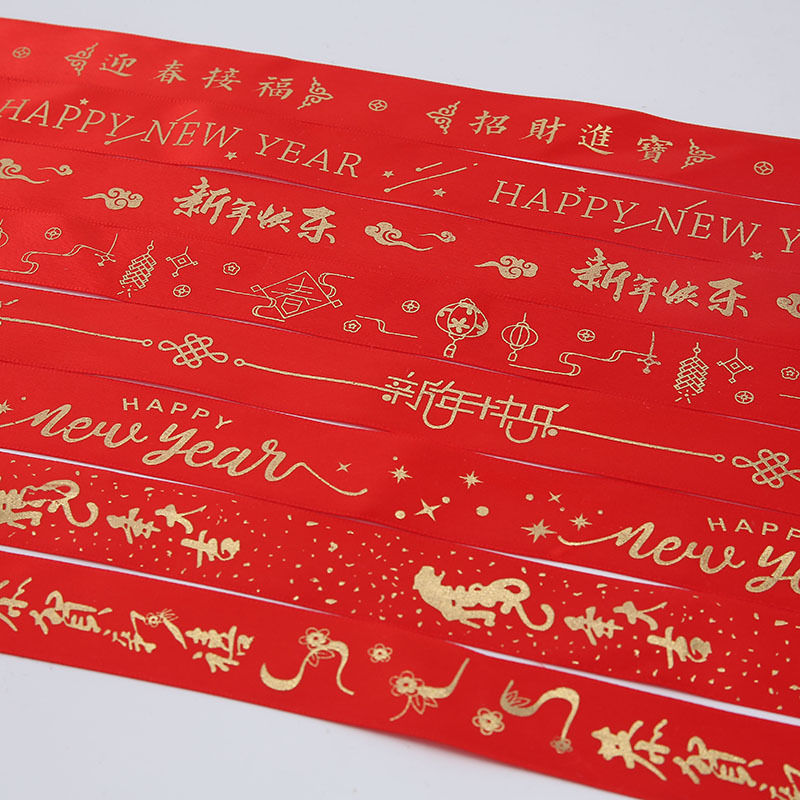 迎春接福 招財進寶
HAPPY NEW YEAR HAPPY NEW Y
新年快乐 新年快乐
春
新年快乐
HAPPY HAPP
new year new ye
虎年大吉 虎年大吉
恭賀新禧 恭賀